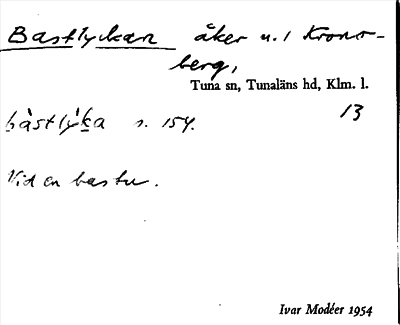 Bastlyckan åker u. 1 Krono-
berg,
Tuna sn, Tunaläns hd, Klm. l.
13
bàstlỳka s. 154.
Vid en bastu.
Ivar Modéer 1954